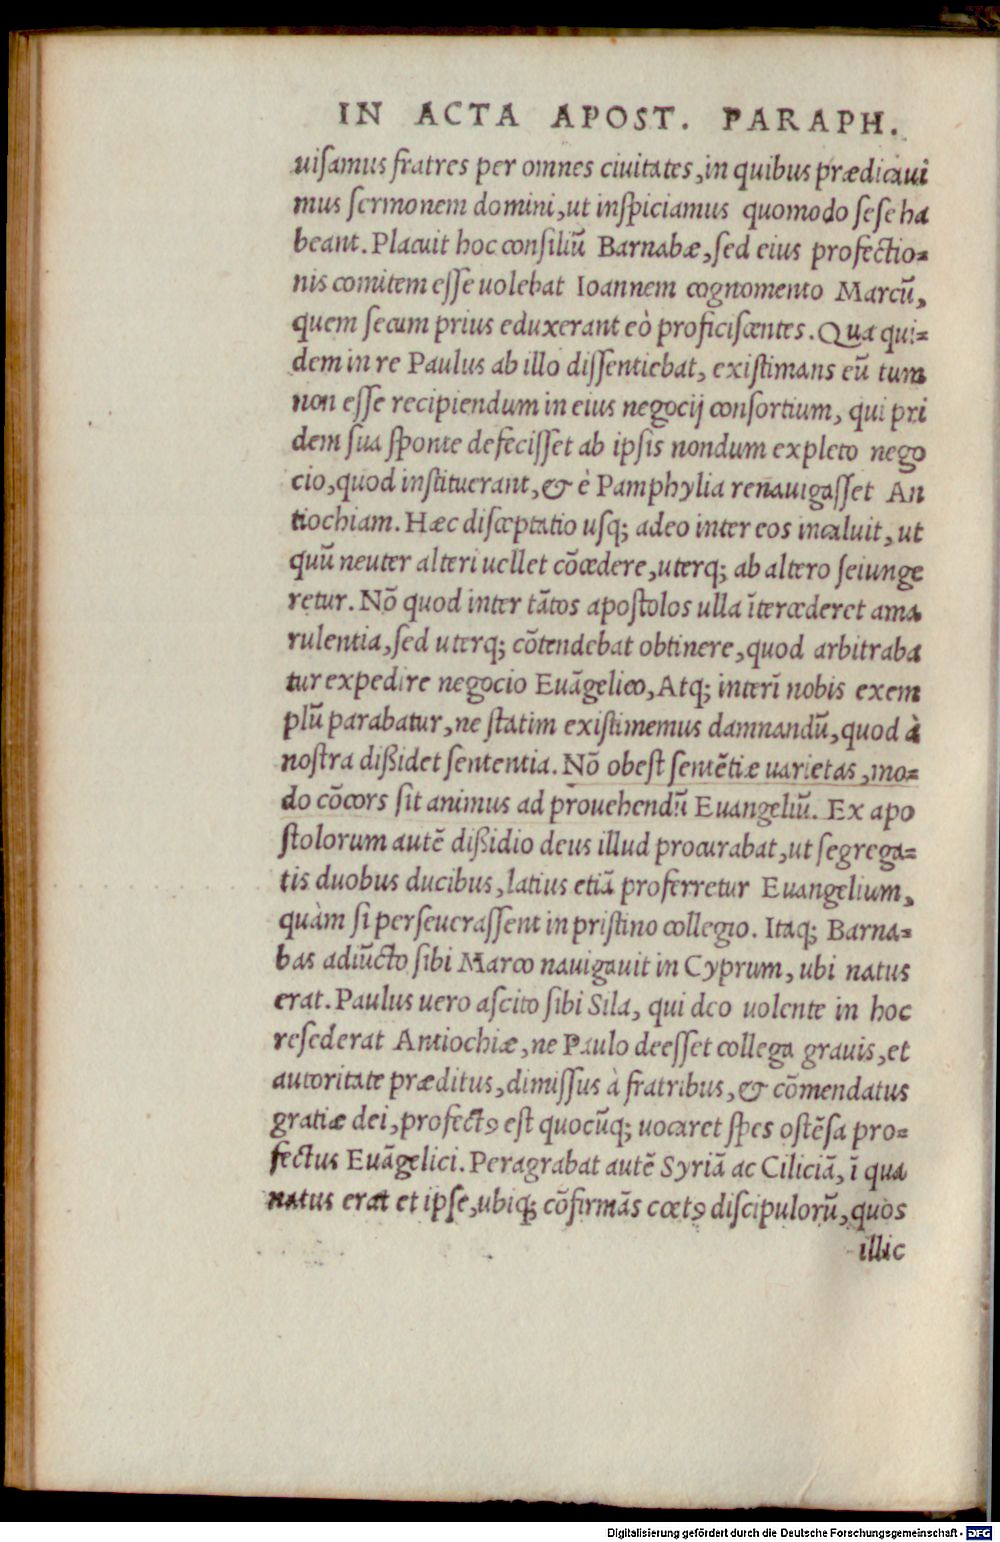 IN ACTA APOST. PARAPH.
uiſamus fratres per omnes ciuitates, in quibus prædicaui
mus ſermonem domini, ut inſpiciamus quomodo ſeſe ha
beant. Placuit hoc conſiliū Barnabæ, ſed eius profectio⸗
nis comitem eſſe uolebat Ioannem cognomento Marcū,
quem ſecum prius eduxerant eò proficiſcentes. Qua qui⸗
dem in re Paulus ab illo diſſentiebat, exiſtimans eū tum
non eſſe recipiendum in eius negocij conſortium, qui pri
dem ſua ſponte defeciſſet ab ipſis nondum expleto nego
cio, quod inſtituerant, & è Pamphylia renauigaſſet An
tiochiam. Hæc diſceptatio uſq; adeo inter eos incaluit, ut
quū neuter alteri uellet cōcedere, uterq; ab altero ſeiunge
retur. Nō quod inter tātos apoſtolos ulla ītercederet ama
rulentia, ſed uterq; cōtendebat obtinere, quod arbitraba
tur expedire negocio Euāgelico, Atq; interī nobis exem
plū parabatur, ne ſtatim exiſtimemus damnandū, quod à
noſtra dißidet ſententia. Nō obeſt ſentētiæ uarietas, mo⸗
do cōcors ſit animus ad prouehendū Euangeliū. Ex apo
ſtolorum autē dißidio deus illud procurabat, ut ſegrega⸗
tis duobus ducibus, latius etiā proferretur Euangelium,
quàm ſi perſeueraſſent in priſtino collegio. Itaq; Barna⸗
bas adiūcto ſibi Marco nauigauit in Cyprum, ubi natus
erat. Paulus uero aſcito ſibi Sila, qui deo uolente in hoc
reſederat Antiochiæ, ne Paulo deeſſet collega grauis, et
autoritate præditus, dimiſſus à fratribus, & cōmendatus
gratiæ dei, profectꝰ eſt quocūq; uocaret ſpes oſtēſa pro⸗
fectus Euāgelici. Peragrabat autē Syriā ac Ciliciā, ī qua
natus erat et ipſe, ubiq; cōfirmās cœtꝰ diſcipulorū, quos
illic
Digitalisierung gefördert durch die Deutsche Forschungsgemeinschaft - DFG